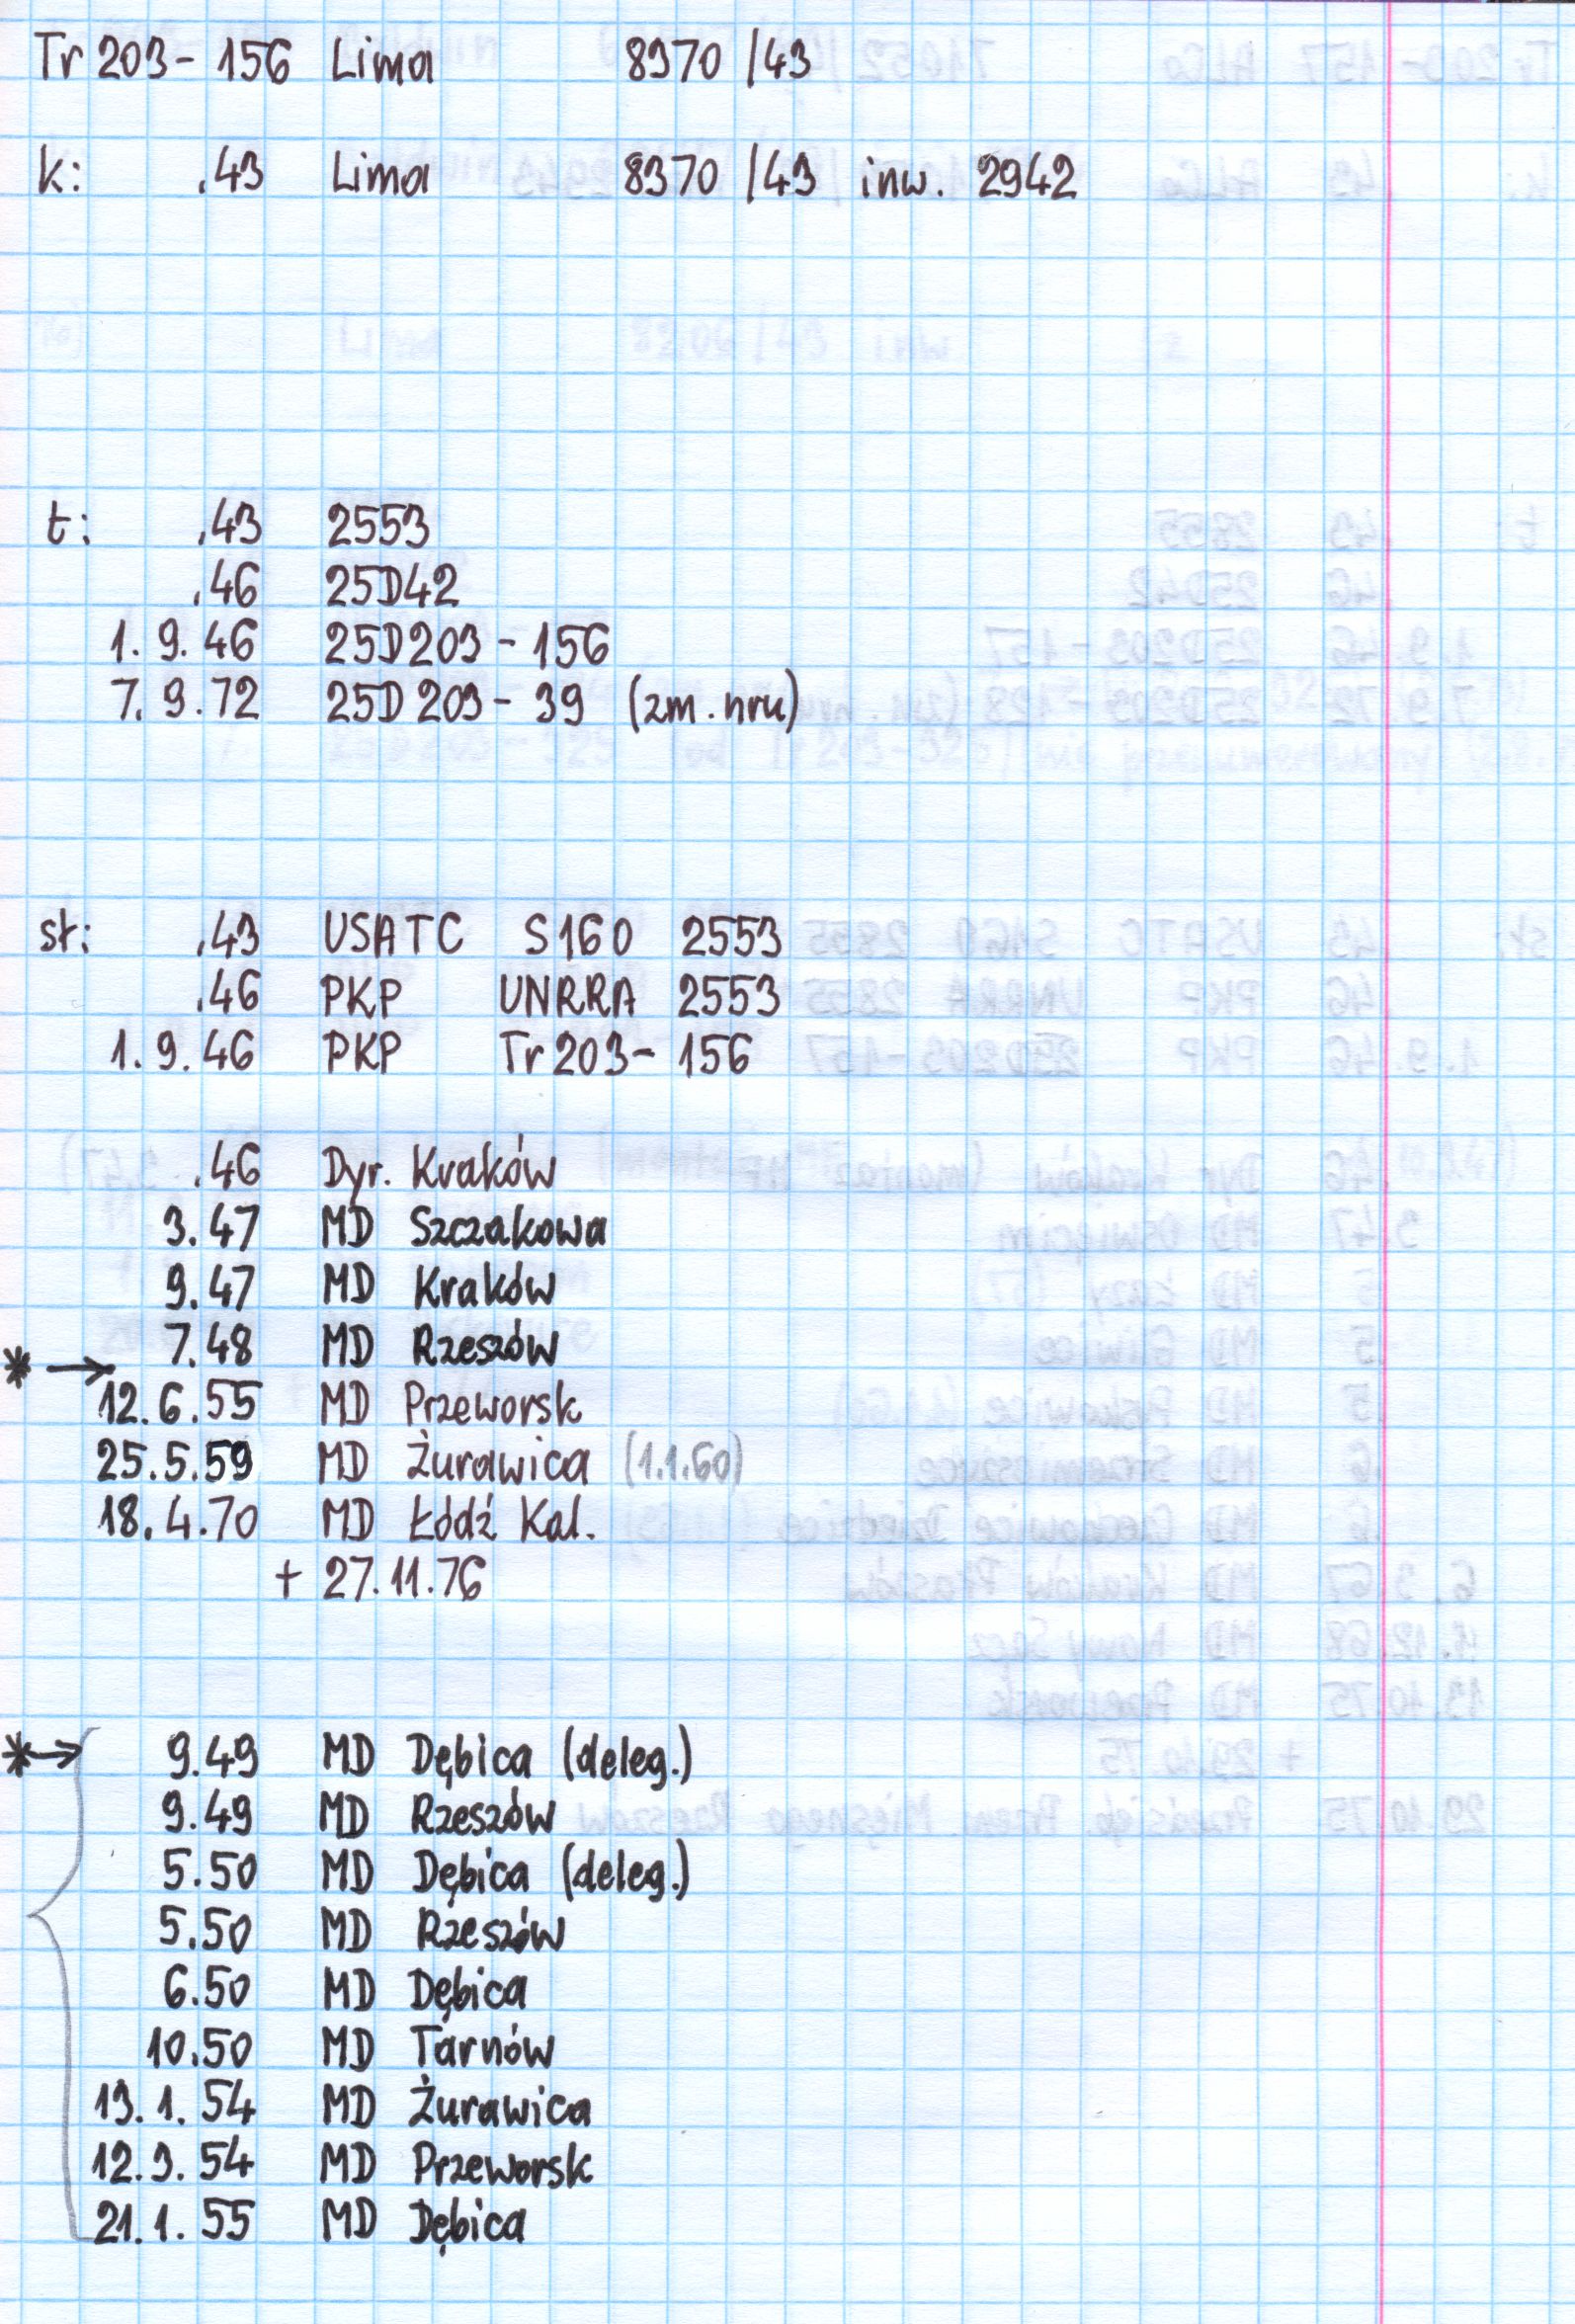 Tr 203 - 156 Lima 8370 /43
k: .43 Lima 8370 /43 inw. 2942
t: .43 2553
.46 25D42
1. 9. 46 25D203 - 156
7. 9. 72 25D203 - 39 (zm. nru)
sł: .43 USATC S160 2553
.46 PKP UNRRA 2553
1. 9. 46 PKP Tr203 - 156
.46 Dyr. Kraków
3. 47 MD Szczakowa
9. 47 MD Kraków
7. 48 MD Rzeszów
* →
12. 6. 55 MD Przeworsk
25. 5. 59 MD Żurawica (1.1.60)
18. 4. 70 MD Łódź Kal.
+ 27.11.76
* → 9.49 MD Dębica (deleg.)
9.49 MD Rzeszów
5.50 MD Dębica (deleg.)
5.50 MD Rzeszów
6.50 MD Dębica
10.50 MD Tarnów
13. 1. 54 MD Żurawica
12. 3. 54 MD Przeworsk
21. 1. 55 MD Dębica